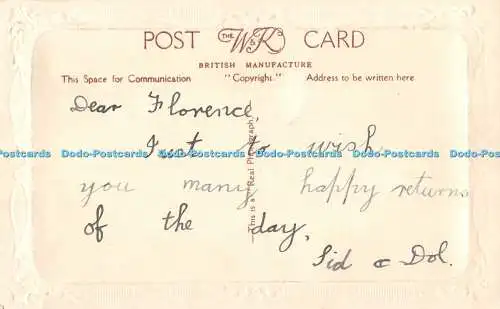 POST THE W&K CARD
BRITISH MANUFACTURE
This Space for Communication "Copyright" Address to be written here
Dear Florence,
Just to wish
Dodo-Postcards Dodo-Postcards Dodo-Postcards Dodo-Postcards Dodo-Postcards
you many happy returns
of the day,
Sid & Dol.
—This is a Real Photograph.